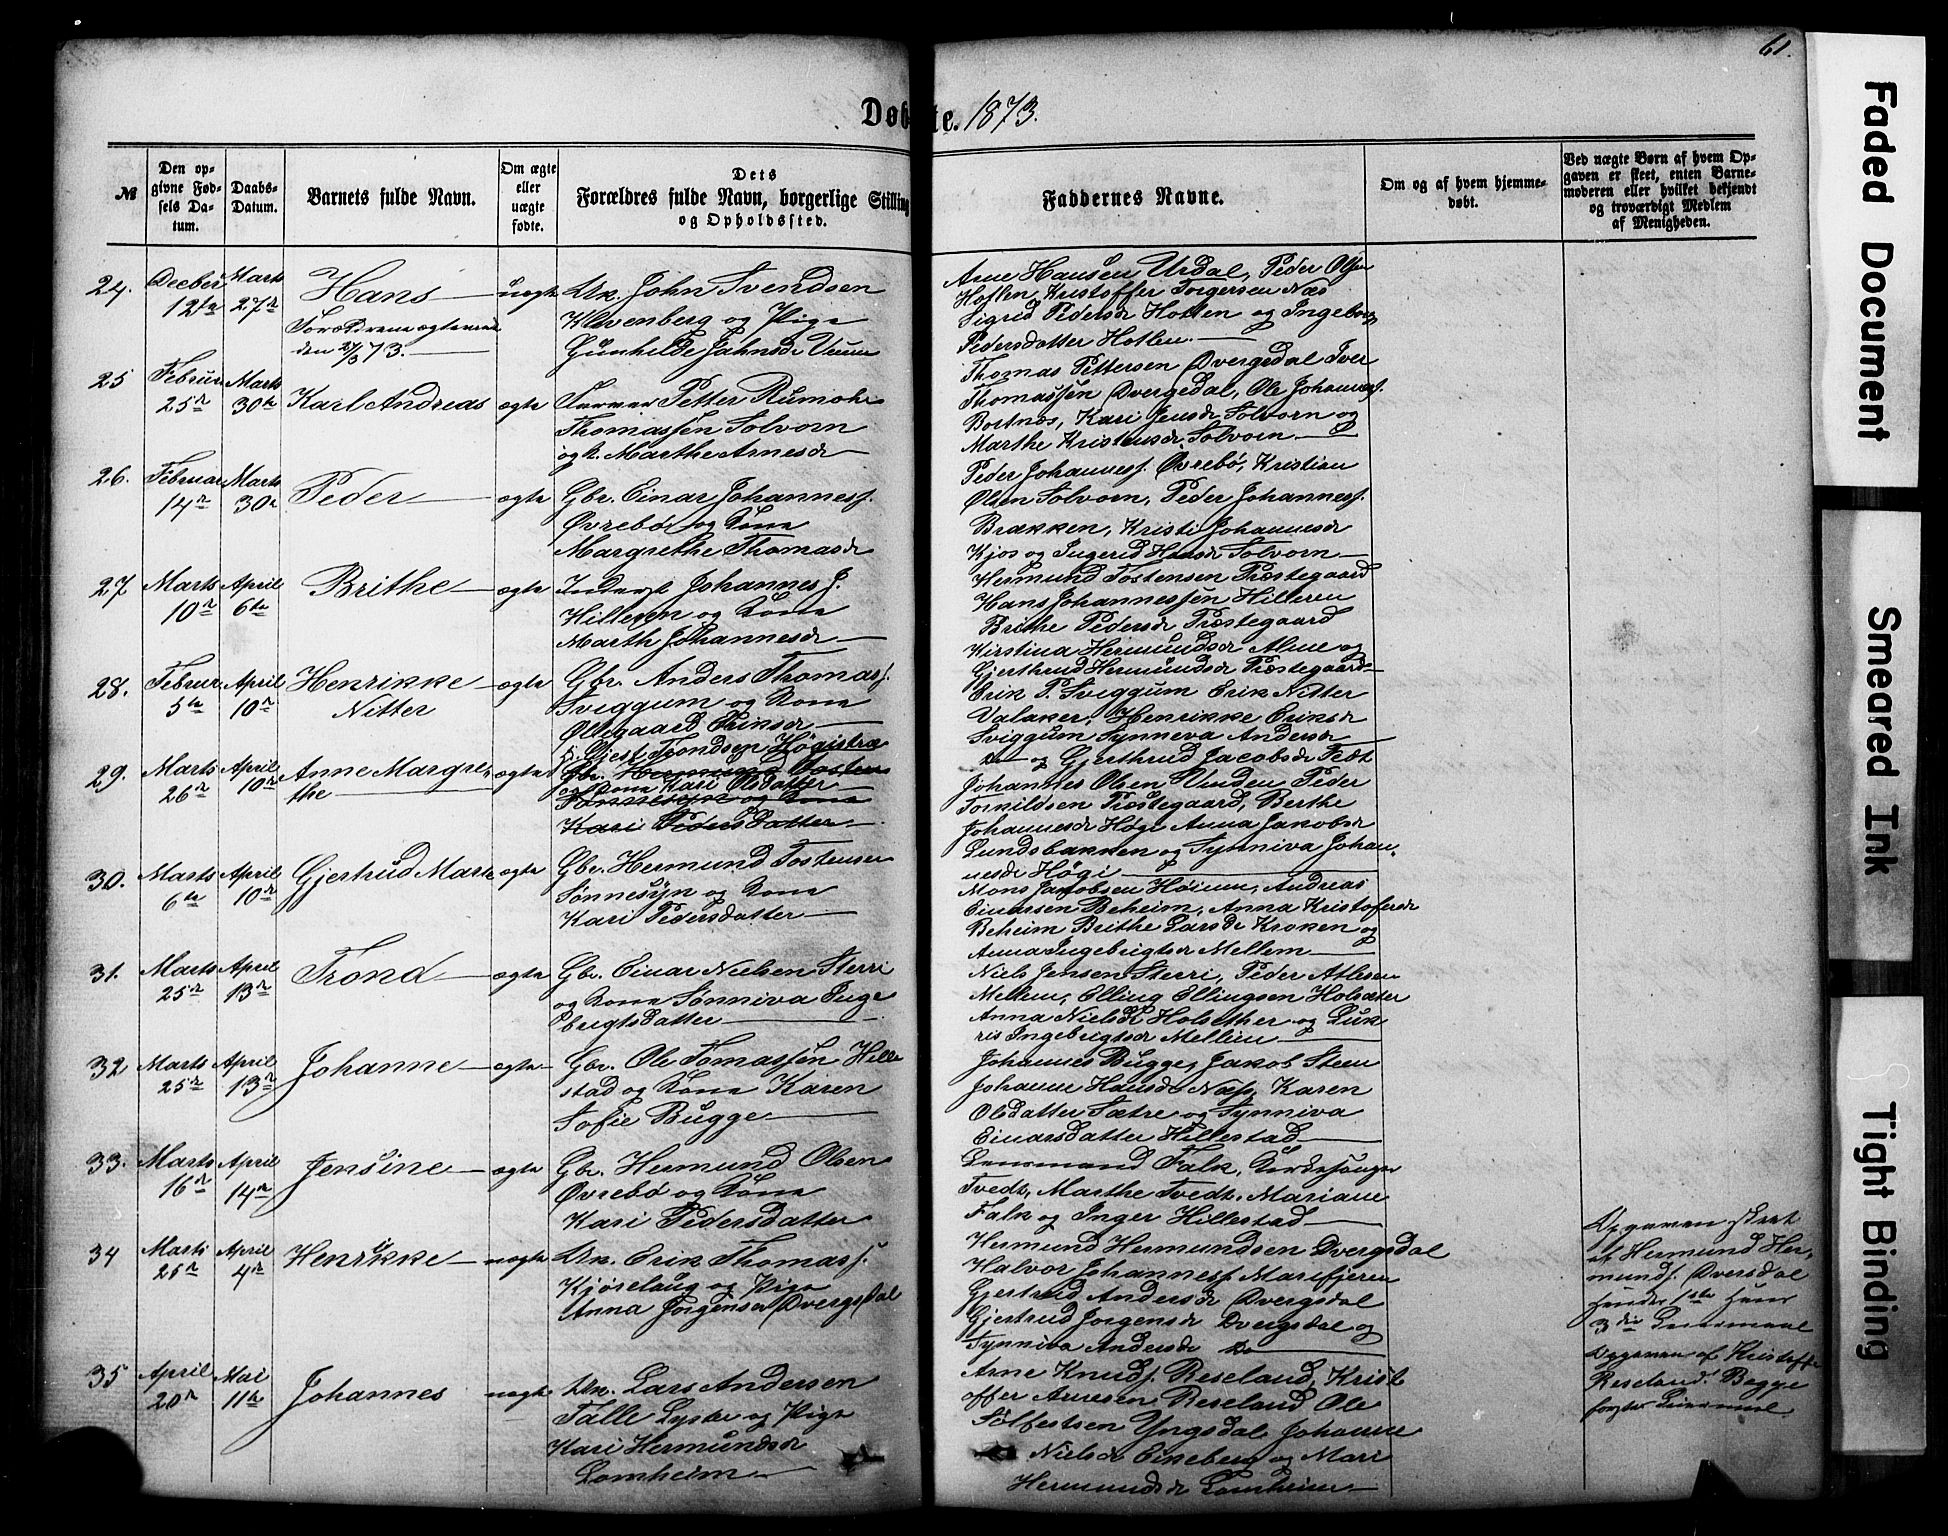 61.
Døbte. 1873.
№
Den opgivne Fødsels Datum.
Daabs-Datum.
Barnets fulde Navn.
Om ægte eller uægte fødte.
Dets Forældres fulde Navn, borgerlige Stilling og Opholdssted.
Faddernes Navne.
Om og af hvem hjemmedøbt.
Ved uægte Børn af hvem Opgaven er skeet, enten Barnemoderen eller hvilket bekjendt og troværdigt Medlem af Menigheden.
24. Decebr 12te Marts 27de Hans uægte
Forældrene ægteviede
den 27/3 73.
Uk. John Svendsen
Klevenberg og Pige
Gunhilde Johnsdr
Arne Hansen Urdal, Peder Olsen
Hotlen, Kristoffer Torgersen Næs
Sigrid Pedersdr Hotlen og Ingeborg
Pedersdatter Hotlen
25 Februar 25de Marts 30te Karl Andreas ægte
Petter Rumohr
Thomassen Solvorn
og k. Marthe Arnesdr
Thomas Pettersen Dvergsdal Iver
Thomassen Dvergsdal, Ole Johannesf.
Bortnes, Kari Jensdr Solvorn og
Marthe Kristensdr Solvorn
26. Februar 14de Marts 30te Peder ægte
Gbr. Einar Johannesf.
Øvrebø og Kone
Margrethe Thomasdr
Peder Johannesf. Øvrebø, Kristian
Olsen Solvorn, Peder Johannesf.
Brakken, Kristi Johannesdr
Kjos og Ingerid Hansdr Solvorn
27 Marts 10de April 6te Brithe ægte
Inderst Johannes J.
Hilleren og Kone
Marth Johannesdr
Hermund Tostensen Præstegaard
Hans Johannessen Hilleren
Brithe Pedersdr Præstegaard
Kirstina Hermundsdr Alme og
Gjerthrud Hermundsdr Præstegaard
28. Februar 5te April 10de Henrikke Nitter ægte
Gbr. Anders Thomasf.
Sviggum og Kone
Ollegaard Eriksdr
Erik P. Sviggum Erik Nitter
Valaker, Henrikke Eriksdr
Sviggum Synneva Andersdr
Do og Gjerthrud Jacobsdr Fedt
29. Marts 26de April 10de Anne Margrethe ægte
Gjest Trondsen Høgistræ
Gbr. Hermund Tosten
og Kone Kari Olsdatter
Sønnesyn og Kone
Kari Pedersdatter
Johannes Olsen Vinden Peder
Tornildsen Præstegaard, Berthe
Johannesdr Høgi Anna Jakobsdr
Lundsbakken og Synniva Johannesdr Høgi
30. Marts 6te April 10de Gjertrud Marte ægte
Gbr. Hermund Tostensen
Sønnesyn og Kone
Kari Pedersdatter
Mons Jakobsen Høium, Andreas
Einarsen Beheim, Anna Kristofersdr
Beheim Brithe Larsdr Kroken og
Anna Ingebrigtsdr Mellem
31. Marts 25de April 13de Trond ægte
Gbr. Einar Nielsen Sterri
og Kone Sønniva Inge
brigtsdatter
Niels Jensen Sterri, Peder Atlesen
Mellem, Elling Ellingsen Holsæter
Anna Nielsdr Holsether og Guk
ris Ingebrigtsdr Mellem
32 Marts 25de April 13de Johanne ægte
Gbr. Ole Tomassen Hille
stad og Kone Karen
Sofie Bugge
Johannes Bugge, Jakob Steen
Johanne Hansdr Næss, Karen
Olsdatter Sætre og Synniva
Einarsdatter Hillestad
33. Marts 16de April 14de Jensine ægte
Gbr. Hermund Olsen
Øvrebø og Kone
Kari Pedersdatter
Lensmand Falk, Kirkesanger
Tvedt, Marthe Tvedt. Mariane
Falk og Inger Hillestad
34 Marts 25de April 4de Henrikke uægte
Uk. Erik Thomasf.
Kjørelaug og Pige
Anna Jørgensdr Dvergsdal
Hermund Hermundsen Dvergsdal
Halvor Johannesf. Marifjeren
Gjertrud Andersdr Dvergsdal
Gjertrud Jørgensdr Dvergsdal og
Synniva Andersdr Do
Opgaven skeet
af Hermund Her-
mundf. Dversdal
hendes 1ste hans
3die Leiermaal
35 April 20de Mai 11te Johannes uægte
Uk. Lars Andersen
Talle Lyster og Pige
Kari Hermundsdr
Lomheim
Arne Knudf. Reseland, Krist
offer Arnesen Reseland Ole
Sølfestsen Yngsdal Johanne
Nielsdr Eineberg og Mari
Hermundsdr Lomheim
Opgaven af Kristoffer
Reseland. Begge
første Leiermaal.
Faded Document
Smeared Ink
Tight Binding